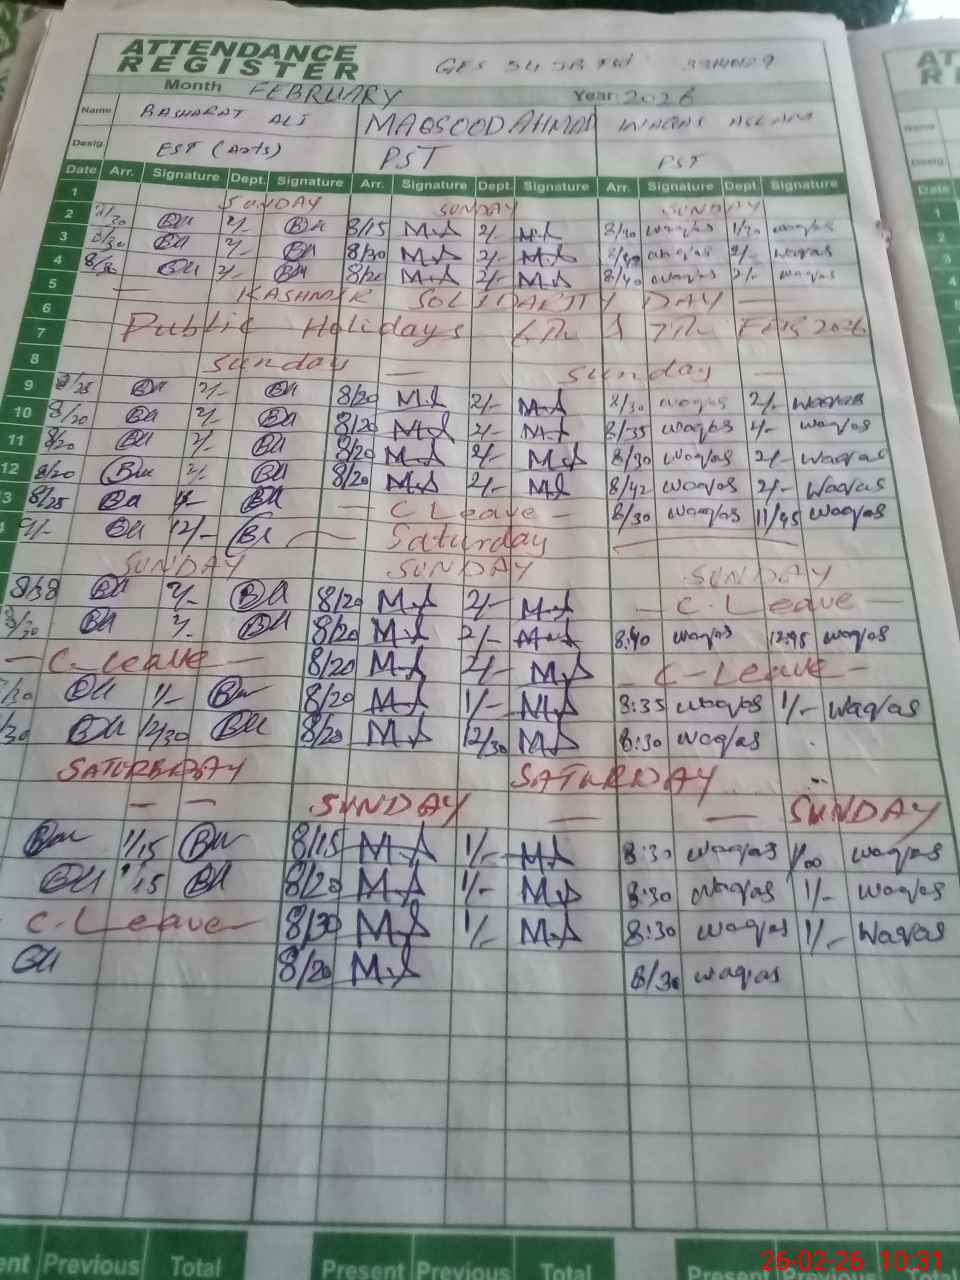 ATTENDANCE
REGISTER
GES 54 JB
Month FEBRUARY Year 2026
Name BASHARAT ALI MAQSOOD AHMAD WAQAS ASLAM
Desig. EST (Arts) PST PST
Date Arr. Signature Dept. Signature Arr. Signature Dept. Signature Arr. Signature Dept. Signature
1 SUNDAY SUNDAY SUNDAY
2 2/- 8/15 M.A 2/- M.A 8/30 waqas 1/30 waqas
3 8/30 2/- 8/20 M.A 2/- M.A waqas 2/- waqas
4 8/30 2/- 8/20 M.A 2/- M.A 8/40 waqas 2/- waqas
5 KASHMIR SOLIDARITY DAY
6 Public Holidays 6Th & 7Th FEB 2026
7
8 Sunday Sunday
9 8/25 2/- 8/20 M.A 2/- M.A 8/30 waqas 2/- waqas
10 8/20 2/- 8/20 M.A 2/- M.A 8/35 waqas 2/- waqas
11 8/20 2/- 8/20 M.A 2/- M.A 8/30 waqas 2/- waqas
12 8/20 2/- 8/20 M.A 2/- M.A 8/42 waqas 2/- waqas
3 8/25 C Leave 8/30 waqas 11/45 waqas
4 9/- 12/- Saturday
SUNDAY SUNDAY SUNDAY
8/38 2/- 8/20 M.A 2/- M.A C. Leave
2/- 8/20 M.A 2/- M.A 8:40 waqas 12:45 waqas
C. Leave 8/20 M.A 2/- M.A C-Leave
1/- 8/20 M.A 1/- M.A 8:35 waqas 1/- waqas
12/30 8/20 M.A 12/30 M.A 8:30 waqas
SATURDAY SATURDAY
SUNDAY SUNDAY
1/15 8/15 M.A 1/- M.A 8:30 waqas 1/00 waqas
1/15 8/20 M.A 1/- M.A 8:30 waqas 1/- waqas
C. Leave 8/30 M.A 1/- M.A 8:30 waqas 1/- waqas
8/20 M.A 8/30 waqas
Previous Total Present Previous Total Total
26-02-26 10:31